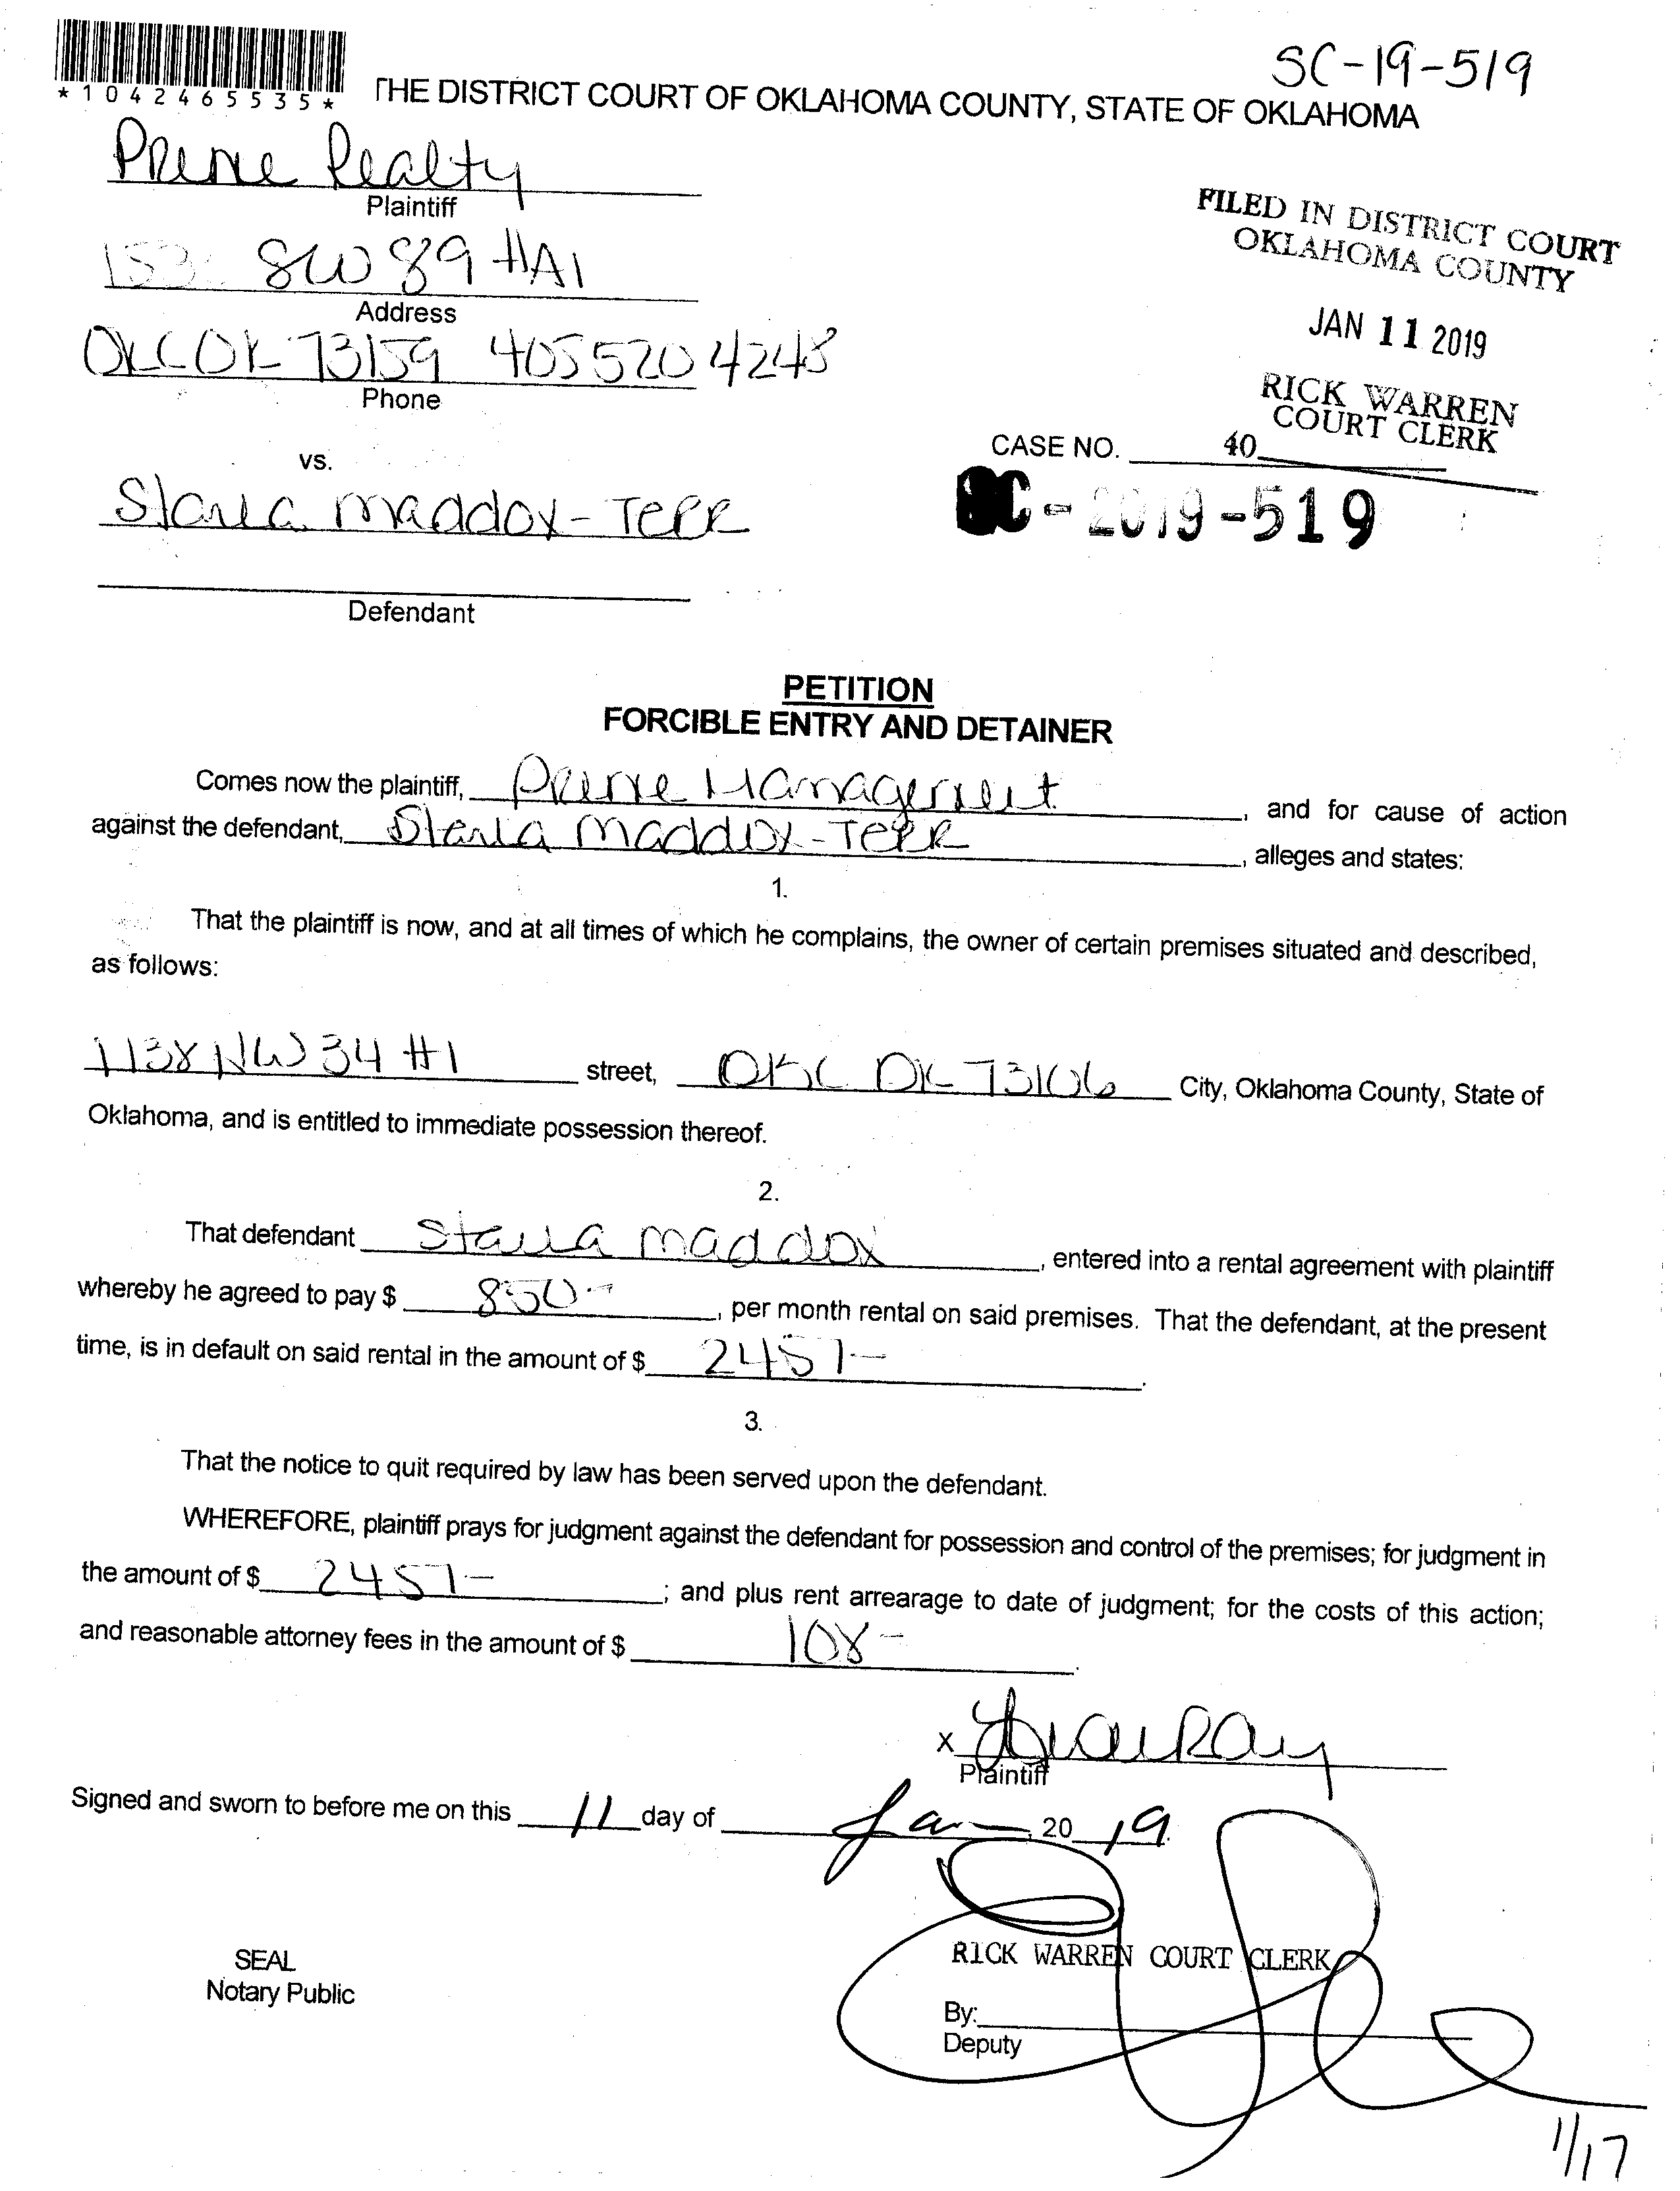 SC-19-519
*1042465535*
THE DISTRICT COURT OF OKLAHOMA COUNTY, STATE OF OKLAHOMA
Prime Realty
Plaintiff
SW 89 #A1
Address
OKC OK 73159 405 520 4248
Phone
FILED IN DISTRICT COURT
OKLAHOMA COUNTY
JAN 11 2019
RICK WARREN
COURT CLERK
40
CASE NO.
SC-2019-519
vs.
Starla Maddox-Terr
Defendant
PETITION
FORCIBLE ENTRY AND DETAINER
Comes now the plaintiff, Prime Management, and for cause of action
against the defendant, Starla Maddox-Terr, alleges and states:
1.
That the plaintiff is now, and at all times of which he complains, the owner of certain premises situated and described,
as follows:
1138 NW 34 #1 street, OKC OK 73106 City, Oklahoma County, State of
Oklahoma, and is entitled to immediate possession thereof.
2.
That defendant Starla Maddox, entered into a rental agreement with plaintiff
whereby he agreed to pay $ 850-, per month rental on said premises. That the defendant, at the present
time, is in default on said rental in the amount of $ 2457-.
3.
That the notice to quit required by law has been served upon the defendant.
WHEREFORE, plaintiff prays for judgment against the defendant for possession and control of the premises; for judgment in
the amount of $ 2457-; and plus rent arrearage to date of judgment; for the costs of this action;
and reasonable attorney fees in the amount of $ 108-.
X
Plaintiff
Signed and sworn to before me on this 11 day of Jan, 2019.
SEAL
Notary Public
RICK WARREN COURT CLERK
By:
Deputy
1/17